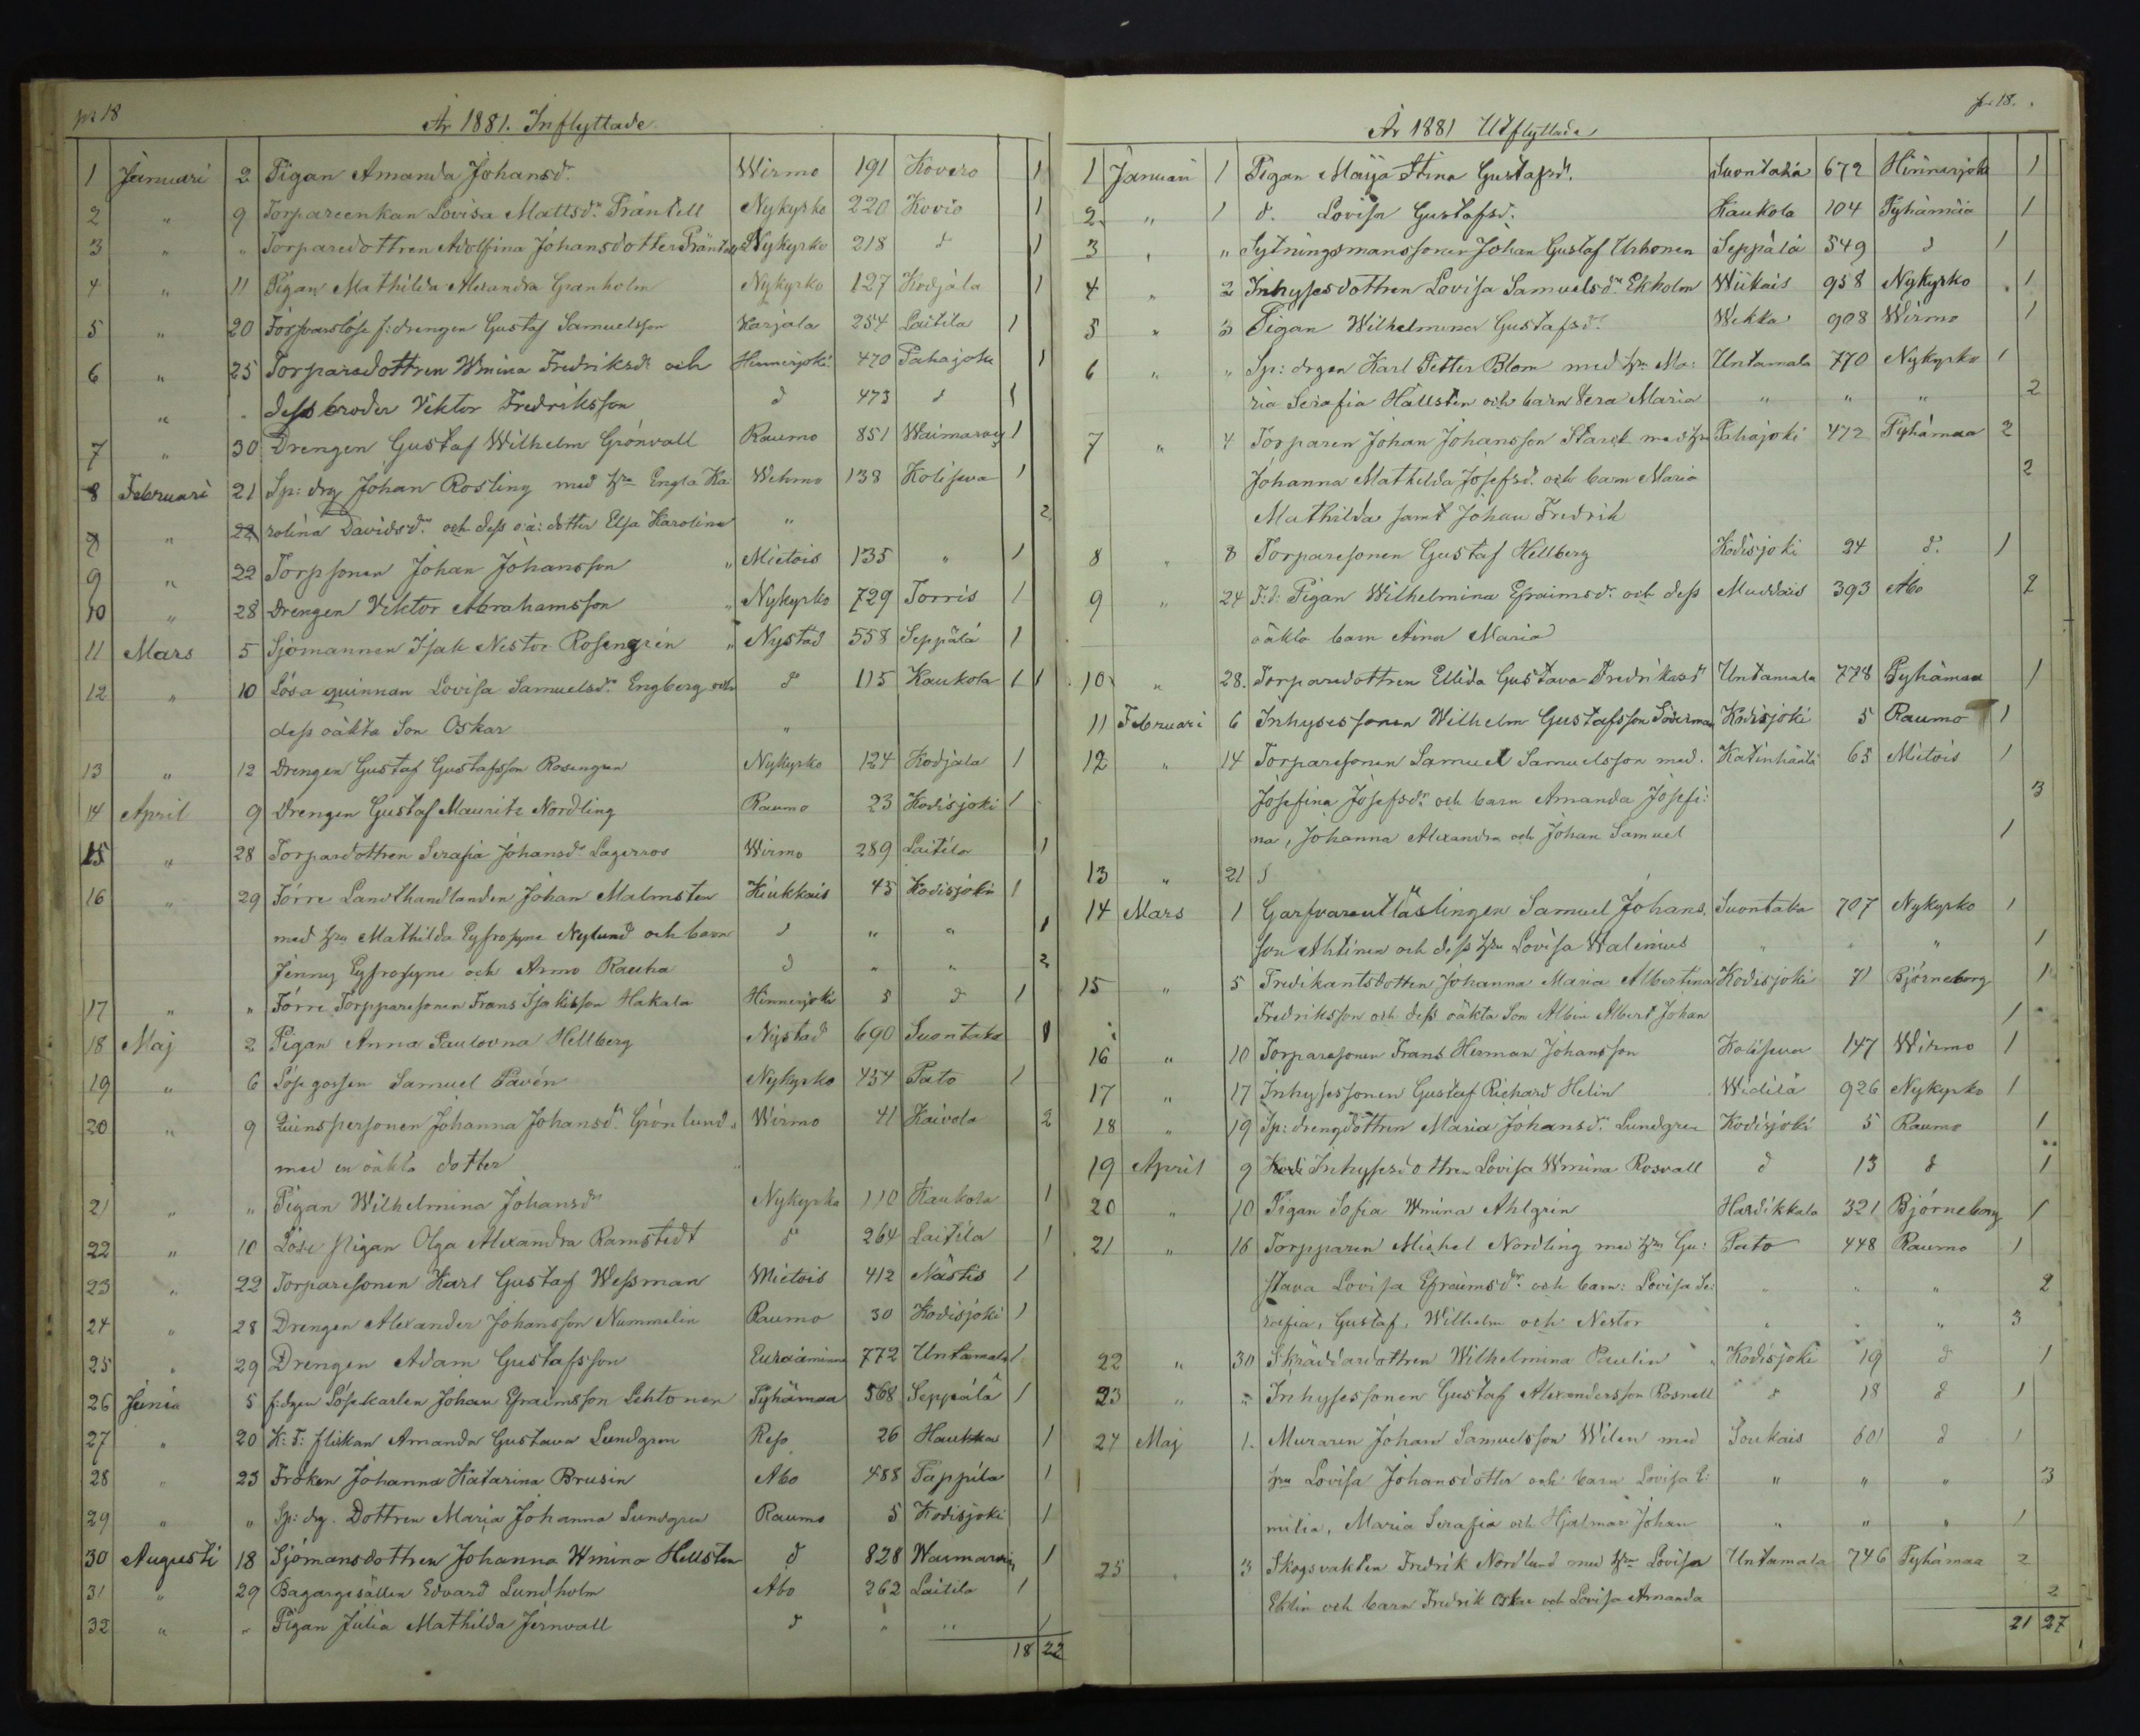 18
År 1881. Inflyttade
1 Januari 2 Pigan Amanda Johansd. Wirmo 191 Kovero 1
2 " 9 Torpareenkan Lovisa Mattsdr Fräntell Nykyrko 220 Kovio 1
3 " " Torparedottren Adolfina Johansdotter Nykyrko 218 d 1
4 " 11 Pigan Mathilda Alexandra Granholm Nykyrko 127 Kodjala 1
5 " 20 Försvarslöse f:drengen Gustaf Samuelsson Karjala 254 Laitila 1
6 " 25 Torparedottren Wmina Fredriksdr och Hinnerjoki 470 Pahajoki 1
" " dess broder Viktor Fredriksson d 473 d 1
7 " 30 Drengen Gustaf Wilhelm Grönvall Raumo 851 1
8 Februari 21 Sp: drg Johan Rosling med hru Engla Ka: Wehmo 138 Koliseva 1
" rolina Davidsdr och dess o:ä: dotter Elsa Karolina " 2
9 " 22 Torpsonen Johan Johansson " Mietois 135 " 1
10 " 28 Drengen Viktor Abrahamsson " Nykyrko 729 Torris 1
11 Mars 5 Sjömannen Isak Nestor Rosengrén " Nystad 558 Seppälä 1
12 " 10 Lösa quinnan Lovisa Samuelsdr Engberg och d 115 Kaukola 1 1
dess oäkta Son Oskar "
13 " 12 Drengen Gustaf Gustafsson Rosengren Nykyrko 124 Kodjala 1
14 April 9 Drengen Gustaf Mauritz Nordling Raumo 23 Kodisjoki 1
15 " 28 Torparedottren Serafia Johansdr Lagerros Wirmo 289 Laitila 1
16 " 29 Förre Landthandlanden Johan Malmsten Kiukkais 45 Kodisjoki 1
med hru Mathilda Eyfrosyne Nylund och barn d " " 1
Jenny Eyfrosyne och Armo Rauha d " " 2
17 " " Förre Torparesonen Frans Isaksson Hakala Hinnerjoki 5 d 1
18 Maj 2 Pigan Anna Paulovna Hellberg Nystad 690 Suontaka 1
19 " 6 Löse gossen Samuel Pavén Nykyrko 454 Pato 1
20 " 9 Quinspersonen Johanna Johansdr Grönlund Wirmo 41 Kaivola 2
med en oäkta dotter
21 " " Pigan Wilhelmina Johansdr Nykyrko 110 Kaukola 1
22 " 10 Löse pigan Olga Alexandra Ramstedt d 264 Laitila 1
23 " 22 Torparesonen Karl Gustaf Wessman Mietois 412 Nästis 1
24 " 28 Drengen Alexander Johansson Nummelin Raumo 30 Kodisjoki 1
25 " 29 Drengen Adam Gustafsson Euraåminne 772 Untamala 1
26 Junia 5 f:drgen Lösekarlen Johan Efraimsson Lehtonen Pyhämaa 568 Seppälä 1
27 " 20 K: F: flickan Amanda Gustava Lundgren Reso 26 Haukka 1
28 " 23 Fröken Johanna Katarina Brusin Åbo 488 Pappila 1
29 " " Sp: drg. Dottren Maria Johanna Lundgren Raumo 5 Kodisjoki 1
30 Augusti 18 Sjömansdottren Johanna Wmina Hellsten d 828 1
31 " 29 Bagargesällen Edvard Lundholm Åbo 262 Laitila 1
32 " " Pigan Julia Mathilda Jernvall d " " 1
18 22
18.
År 1881 Utflyttade
1 Januari 1 Pigan Maija Stina Gustafsdr. Suontaka 672 Hinnerjoki 1
2 " 1 d. Lovisa Gustafsd. Kaukola 104 Pyhämää 1
3 " " Sytningsmanssonen Johan Gustaf Urhonen Seppälä 549 d 1
4 " 2 Inhysesdottren Lovisa Samuelsdr Ekholm Wiikais 958 Nykyrko 1
5 " 3 Pigan Wilhelmina Gustafsdr Wekka 908 Wirmo 1
6 " " Sp: drgen Karl Petter Blom med hru Ma: Untamala 770 Nykyrko 1
ria Serafia Hällsten och barn Vera Maria " " " 2
7 " 4 Torparen Johan Johansson Starck med hru Pahajoki 472 Pyhämaa 2
Johanna Mathilda Josefsd. och barn Maria 2
Mathilda samt Johan Fredrik
8 " 8 Torparesonen Gustaf Hellberg Kodisjoki 24 d. 1
9 " 24 F:d: Pigan Wilhelmina Efraimsdr och dess Muddais 393 Åbo 2
oäkta barn Aina Maria
10 " 28. Torparedottren Ellida Gustava Fredriksdr Untamala 778 Pyhämaa 1
11 Februari 6 Inhysessonen Wilhelm Gustafsson Söderman Kodisjoki 5 Raumo 1
12 " 14 Torparesonen Samuel Samuelsson med. Katinhäntä 65 Mietois 1
Josefina Josefsdr och barn Amanda Josefi: 3
na, Johanna Alexandra och Johan Samuel 1
13 " 21
14 Mars 1 Garfvareutläslingen Samuel Johans, Suontaka 707 Nykyrko 1
son Ahtinen och dess hru Lovisa Walenius " " " 1
15 " 5 Predikantsdottren Johanna Maria Albertina Kodisjoki 71 Björneborg 1
Fredriksson och dess oäkta Son Albin Albert Johan 1
16 " 10 Torparesonen Frans Herman Johansson Koliseva 147 Wirmo 1
17 " 17 Inhysessonen Gustaf Richard Helin Widilä 926 Nykyrko 1
18 " 19 Sp: drengdottren Maria Johansdr Lundgren Kodisjoki 5 Raumo 1
19 April 9 Inhysesdottren Lovisa Wmina Rosvall d 13 d 1
20 " 10 Pigan Sofia Wmina Ahlgrén Haudikkala 321 Björneborg 1
21 " 16 Torpparen Michel Nordling med hru Gu: Pato 448 Raumo 1
stava Lovisa Efraimsdr och barn: Lovisa Se: " " " 2
rafia, Gustaf, Wilhelm och Nestor " " " 3
22 " 30 Skräddardottren Wilhelmina Paulin " Kodisjoki 19 d 1
23 " " Inhysessonen Gustaf Alexandersson Rosnell d 18 d 1
24 Maj 1. Muraren Johan Samuelsson Wilen med Soukais 601 d 1
hru Lovisa Johansdotter och barn Lovisa E: " " " 3
milia, Maria Serafia och Hjalmar Johan " " " 1
25 " 3 Skogsvakten Fredrik Nordlund med hru Lovisa Untamala 746 Pyhämaa 2
Eklin och barn Fredrik Oskar och Lovisa Amanda 2
21 27